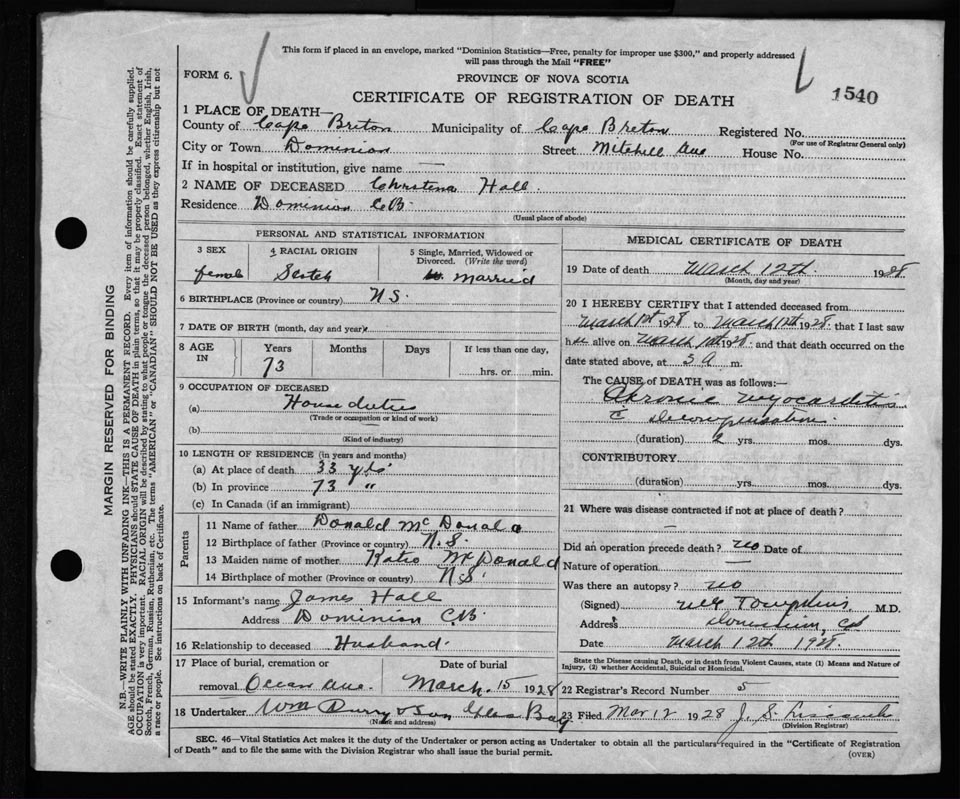 This form if placed in an envelope, marked "Dominion Statistics—Free, penalty for improper use $300," and properly addressed
will pass through the Mail "FREE"
FORM 6.
PROVINCE OF NOVA SCOTIA
CERTIFICATE OF REGISTRATION OF DEATH
1540
1 PLACE OF DEATH—
County of Cape Breton Municipality of Cape Breton Registered No.
(For use of Registrar General only)
City or Town Dominion Street Mitchell Ave House No.
If in hospital or institution, give name —
2 NAME OF DECEASED Christena Hall.
Residence Dominion C.B.
(Usual place of abode)
PERSONAL AND STATISTICAL INFORMATION
3 SEX 4 RACIAL ORIGIN 5 Single, Married, Widowed or
Divorced. (Write the word)
female Scotch Married
6 BIRTHPLACE (Province or country) N S.
7 DATE OF BIRTH (month, day and year)
8 AGE IN Years Months Days If less than one day,
73 hrs. or min.
9 OCCUPATION OF DECEASED
(a) House duties
(Trade or occupation or kind of work)
(b)
(Kind of industry)
10 LENGTH OF RESIDENCE (in years and months)
(a) At place of death 33 yrs
(b) In province 73 "
(c) In Canada (if an immigrant)
Parents
11 Name of father Donald McDonald
12 Birthplace of father (Province or country) N.S.
13 Maiden name of mother Katie McDonald
14 Birthplace of mother (Province or country) N S.
15 Informant's name James Hall
Address Dominion C.B
16 Relationship to deceased Husband.
17 Place of burial, cremation or Date of burial
removal Ocean Ave. March. 15 1928
18 Undertaker Wm Curry & Son Glace Bay
(Name and address)
MEDICAL CERTIFICATE OF DEATH
19 Date of death March 12th. 1928.
(Month, day and year)
20 I HEREBY CERTIFY that I attended deceased from
March 1st 1928 to March 12th 1928. that I last saw
her alive on March 1928. and that death occurred on the
date stated above, at 5 a. m.
The CAUSE of DEATH was as follows:—
Chronic myocarditis
c Decompensation
(duration) 2 yrs. mos. dys.
CONTRIBUTORY
(duration) yrs. mos. dys.
21 Where was disease contracted if not at place of death?
—
Did an operation precede death? no Date of
Nature of operation —
Was there an autopsy? no
(Signed) Tompkins M.D.
Address Dominion, CB
Date March 12th 1928.
State the Disease causing Death, or in death from Violent Causes, state (1) Means and Nature of
Injury, (2) whether Accidental, Suicidal or Homicidal.
22 Registrar's Record Number 5
23 Filed Mar 12 1928 J. S.
(Division Registrar)
SEC. 46—Vital Statistics Act makes it the duty of the Undertaker or person acting as Undertaker to obtain all the particulars required in the "Certificate of Registration
of Death" and to file the same with the Division Registrar who shall issue the burial permit.
(OVER)
MARGIN RESERVED FOR BINDING
N.B.—WRITE PLAINLY WITH UNFADING INK—THIS IS A PERMANENT RECORD. Every item of information should be carefully supplied.
AGE should be stated EXACTLY. PHYSICIANS should STATE CAUSE OF DEATH in plain terms, so that it may be properly classified. Exact statement of
OCCUPATION is very important. RACIAL ORIGIN will be described by stating to what people or tongue the deceased person belonged, whether English, Irish,
Scotch, French, German, Russian, Ruthenian, etc. The terms "AMERICAN" or "CANADIAN" SHOULD NOT BE USED as they express citizenship but not
a race or people. See instructions on back of Certificate.